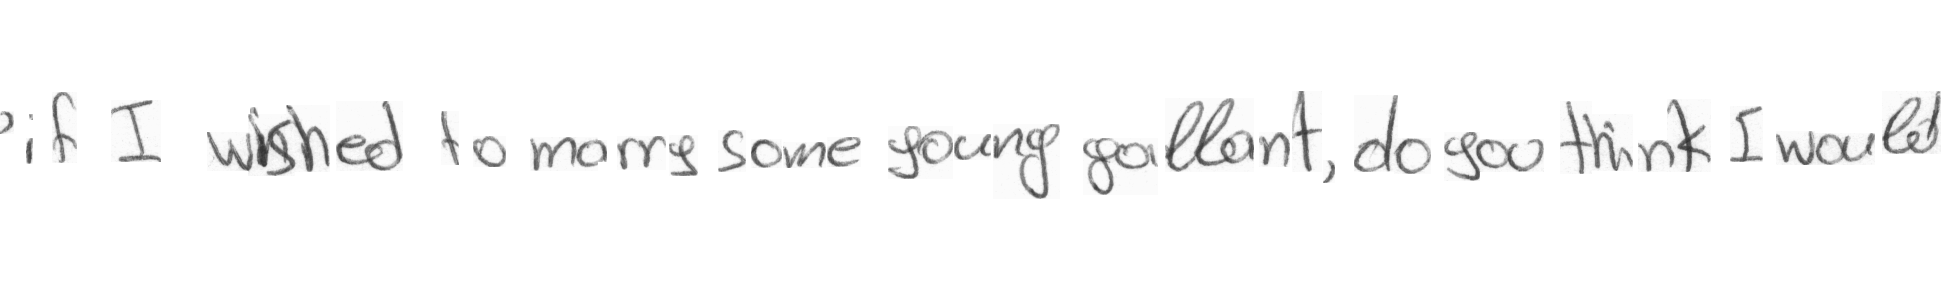 if I wished to marry some young gallant, do you think I would